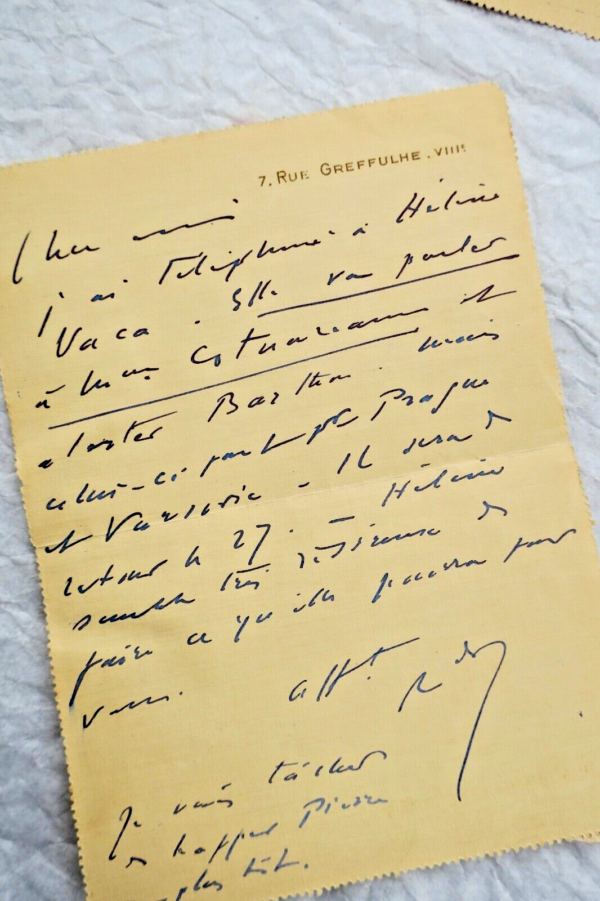 7, RUE GREFFULHE . VIIIE
Cher ami
j'ai téléphoné à Hélène
Vaca. Elle va parler
à Mme et
alerter Barthou. mais
celui-ci part pr Prague
et Varsovie - Il sera de
retour le 27. - Hélène
semble très désireuse de
faire ce qu'elle pourra pour
vous. afft.
Je vais tâcher
de happer Pierre
plus tôt.